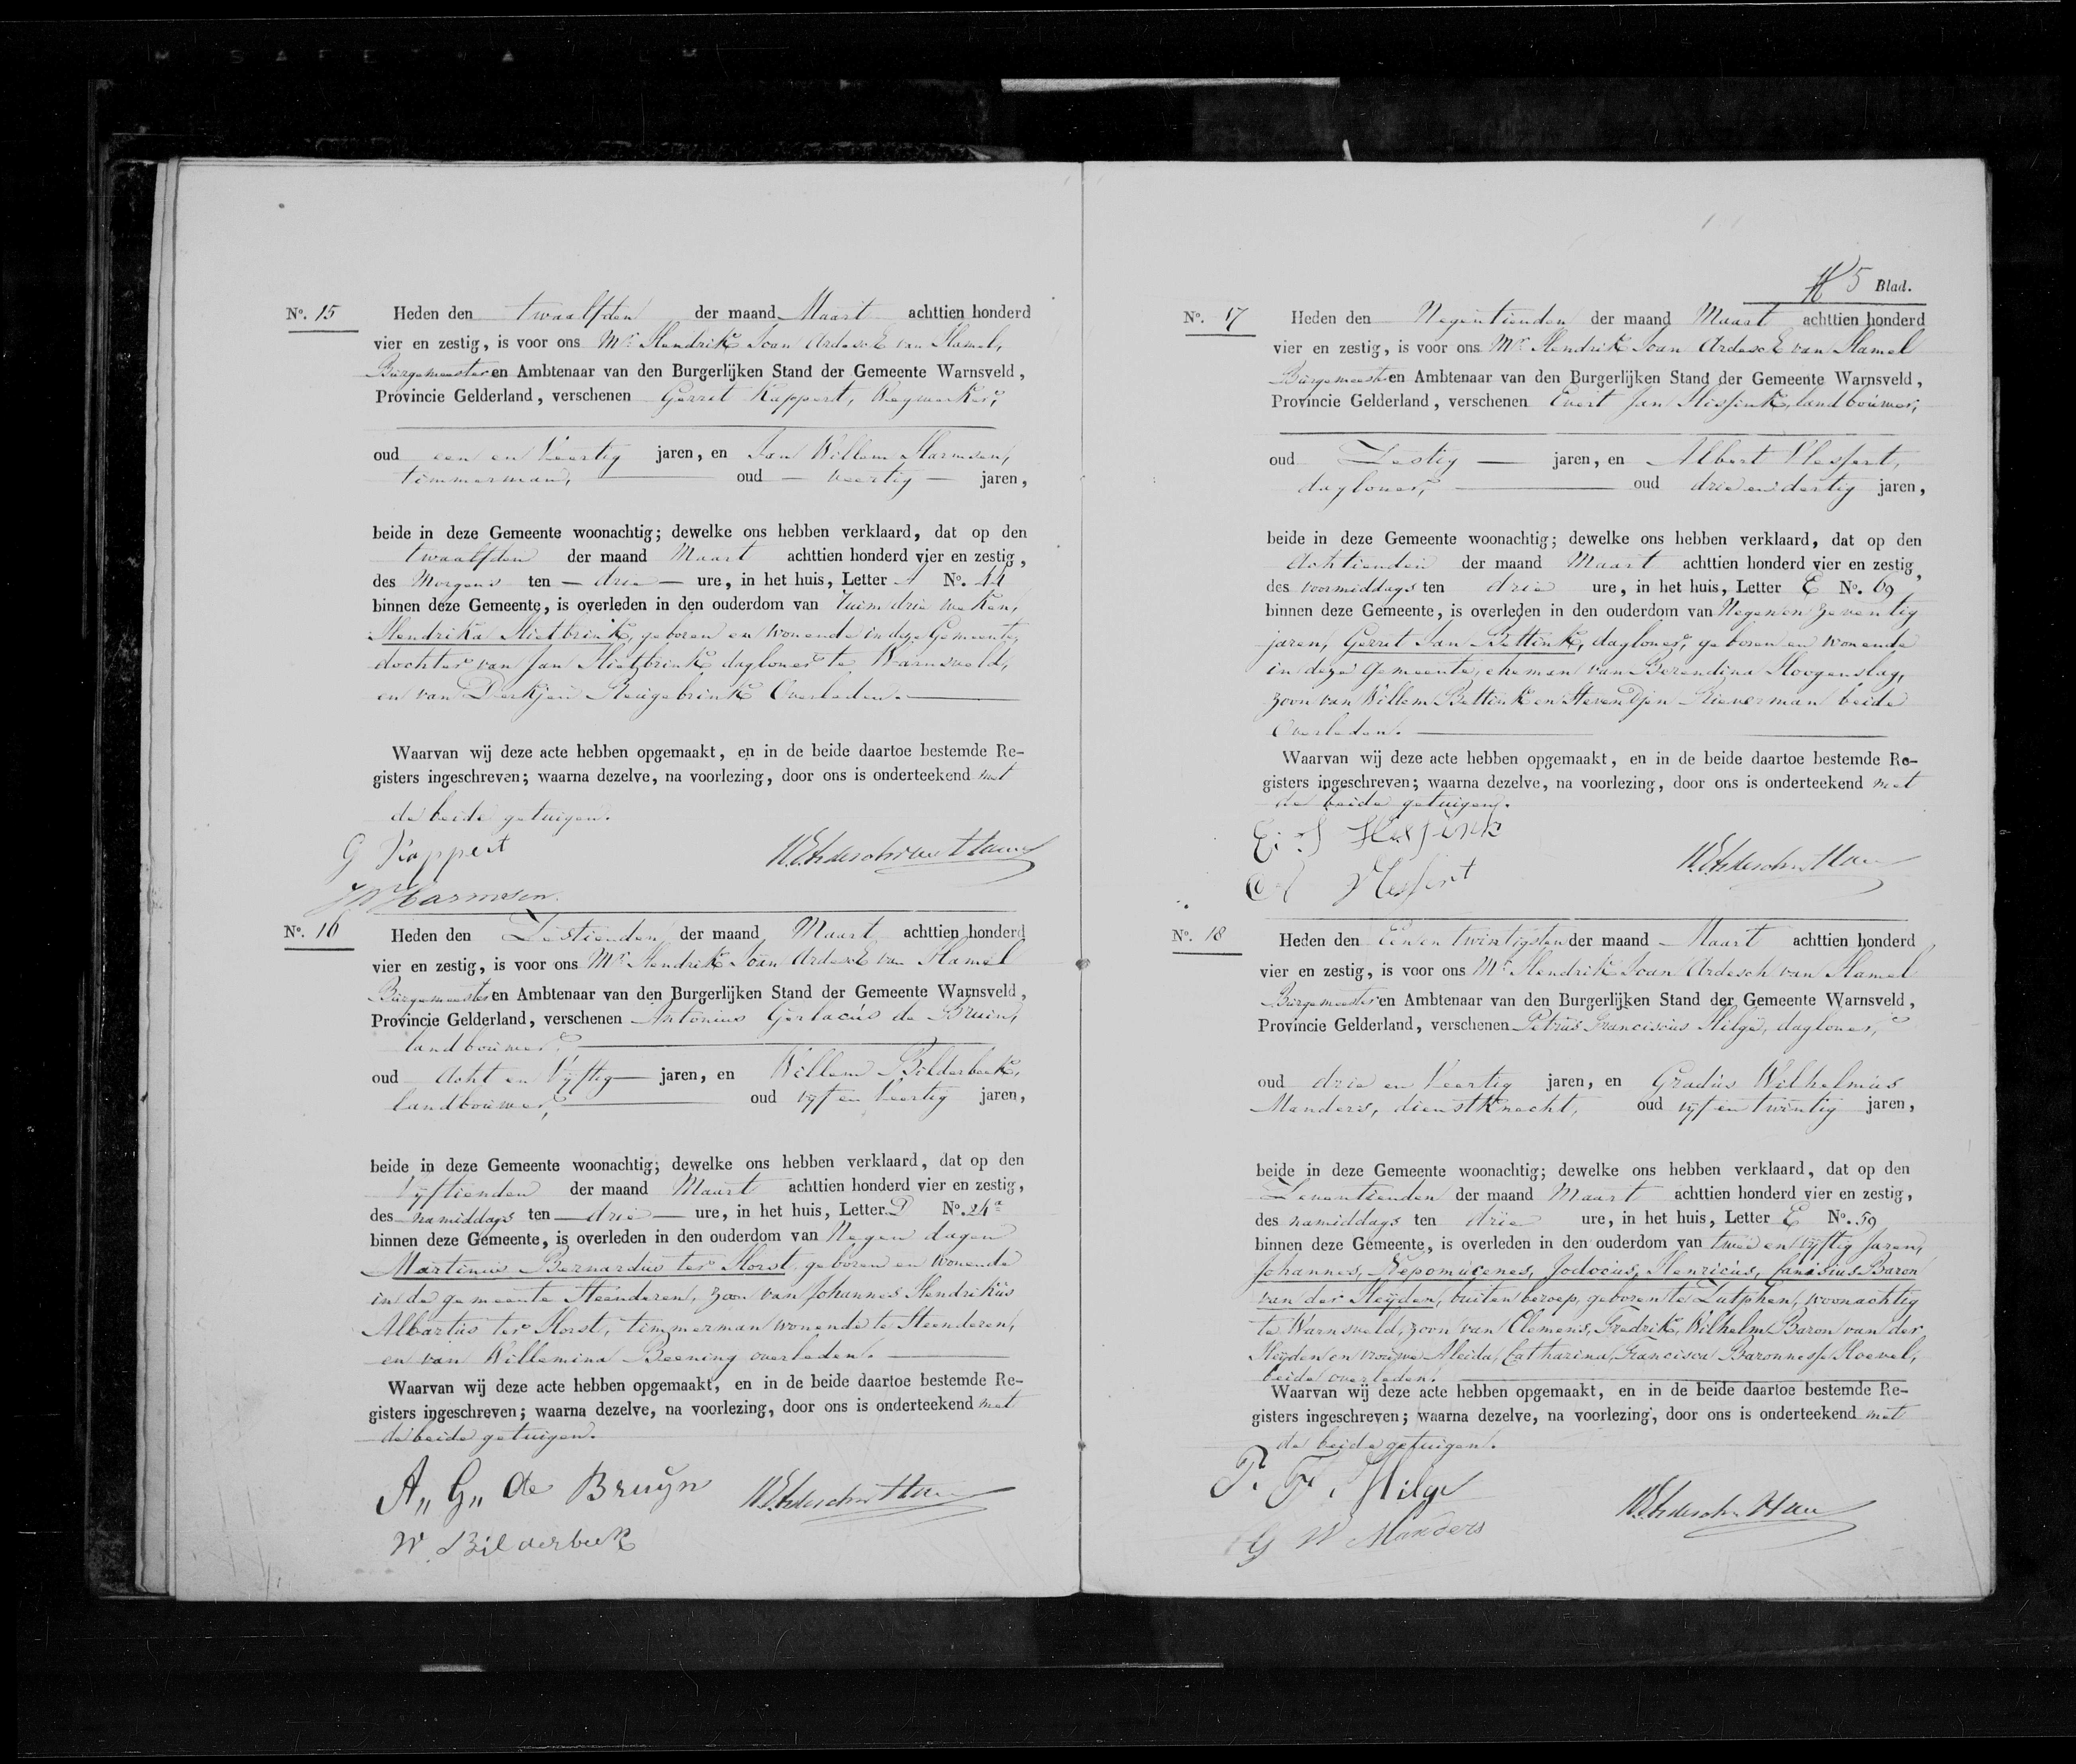 No. 15 Heden den twaalfden der maand Maart achttien honderd
vier en zestig, is voor ons Mr. Hendrik Joan Ardesch van Hamel,
Burgemeester en Ambtenaar van den Burgerlijken Stand der Gemeente Warnsveld,
Provincie Gelderland, verschenen Gerrit Kappert, Wegwerker,
oud een en Veertig jaren, en Jan Willem Harmsen,
timmerman, oud veertig jaren,
beide in deze Gemeente woonachtig; dewelke ons hebben verklaard, dat op den
twaalfden der maand Maart achttien honderd vier en zestig,
des Morgens ten drie ure, in het huis, Letter A No. 44
binnen deze Gemeente, is overleden in den ouderdom van ruim drie weken,
Hendrika Hietbrink, geboren en wonende in deze Gemeente,
dochter van Jan Hietbrink daglooner te Warnsveld,
en van Derkjen Overleden.
Waarvan wij deze acte hebben opgemaakt, en in de beide daartoe bestemde Re-
gisters ingeschreven; waarna dezelve, na voorlezing, door ons is onderteekend met
de beide getuigen.
G Kappert
J W Harmsen
No. 16 Heden den Zestienden der maand Maart achttien honderd
vier en zestig, is voor ons Mr. Hendrik Joan Ardesch van Hamel
Burgemeester en Ambtenaar van den Burgerlijken Stand der Gemeente Warnsveld,
Provincie Gelderland, verschenen Antonius Gerlacus de Bruin,
landbouwer,
oud Acht en Vijftig jaren, en Willem Bilderbeek,
landbouwer, oud vijf en Veertig jaren,
beide in deze Gemeente woonachtig; dewelke ons hebben verklaard, dat op den
Vijftienden der maand Maart achttien honderd vier en zestig,
des namiddags ten drie ure, in het huis, Letter D No. 24a
binnen deze Gemeente, is overleden in den ouderdom van Negen dagen
Martinus Bernardus ter Horst, geboren en wonende
in de gemeente Steenderen, zoon van Johannes Hendrikus
Albartus ter Horst, timmerman wonende te Steenderen,
en van Willemina Beening overleden.
Waarvan wij deze acte hebben opgemaakt, en in de beide daartoe bestemde Re-
gisters ingeschreven; waarna dezelve, na voorlezing, door ons is onderteekend met
de beide getuigen.
A,, G,, de Bruijn
W. Bilderbeek
5 Blad.
No. 17 Heden den Negentienden der maand Maart achttien honderd
vier en zestig, is voor ons Mr. Hendrik Joan Ardesch van Hamel
Burgemeester en Ambtenaar van den Burgerlijken Stand der Gemeente Warnsveld,
Provincie Gelderland, verschenen Evert Jan Hissink, landbouwer,
oud Zestig jaren, en Albert Vlessert,
daglooner, oud drie en dertig jaren,
beide in deze Gemeente woonachtig; dewelke ons hebben verklaard, dat op den
Achttienden der maand Maart achttien honderd vier en zestig,
des voormiddags ten drie ure, in het huis, Letter E No. 69
binnen deze Gemeente, is overleden in den ouderdom van Negen en zeventig
jaren, Gerrit Jan Bettink, daglooner, geboren en wonende
in deze Gemeente, eheman van Berendina Hoogenslag,
zoon van Willem Bettink en Stevendjen beide
Overleden.
Waarvan wij deze acte hebben opgemaakt, en in de beide daartoe bestemde Re-
gisters ingeschreven; waarna dezelve, na voorlezing, door ons is onderteekend met
de beide getuigen.
No. 18 Heden den Een en twintigsten der maand Maart achttien honderd
vier en zestig, is voor ons Mr. Hendrik Joan Ardesch van Hamel
Burgemeester en Ambtenaar van den Burgerlijken Stand der Gemeente Warnsveld,
Provincie Gelderland, verschenen Petrus Franciscus Hilge, daglooner,
oud drie en Veertig jaren, en Gradus Wilhelmus
Manders, dienstknecht, oud vijf en twintig jaren,
beide in deze Gemeente woonachtig; dewelke ons hebben verklaard, dat op den
Zeventienden der maand Maart achttien honderd vier en zestig,
des namiddags ten drie ure, in het huis, Letter E No. 59
binnen deze Gemeente, is overleden in den ouderdom van twee en vijftig Jaren,
Johannes, Nepomucenes, Jodocus, Henricus, Canisius Baron
van der Heijden, buiten beroep, geboren te Zutphen, woonachtig
te Warnsveld, zoon van Clemens, Fredrik, Wilhelm Baron van der
Heijden en vrouwe Aleida, Catharina, Francisca Baronnesse Hoevel,
beide overleden.
Waarvan wij deze acte hebben opgemaakt, en in de beide daartoe bestemde Re-
gisters ingeschreven; waarna dezelve, na voorlezing, door ons is onderteekend met
de beide getuigen.
P. F. Hilge
G W Manders